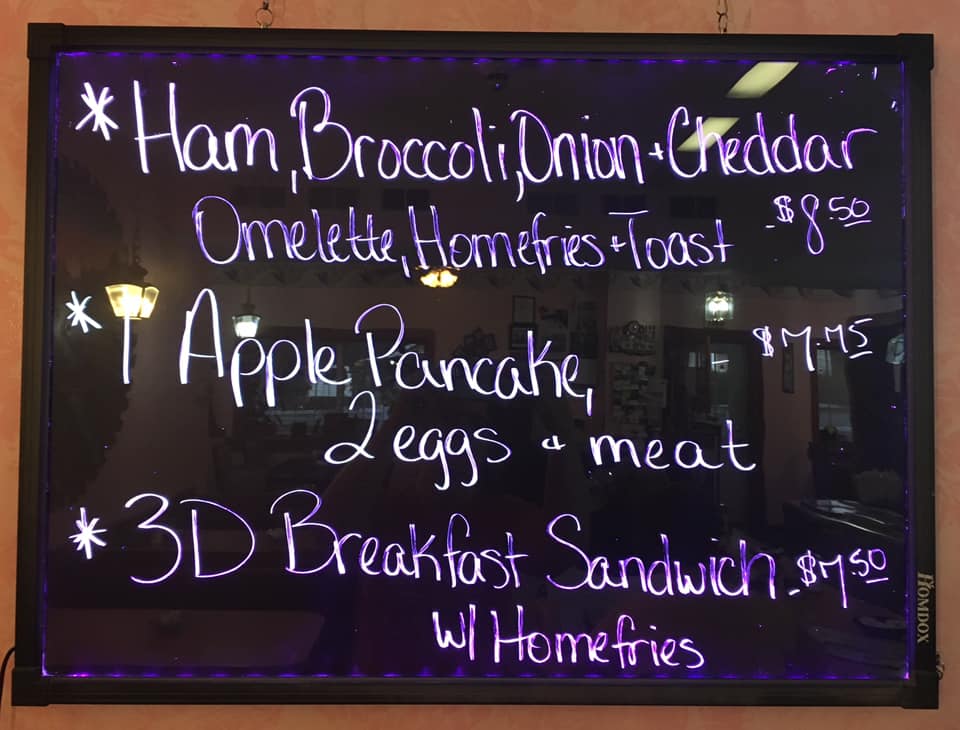 * Ham, Broccoli, Onion + Cheddar
Omelette, Homefries + Toast - $8.50
* 1 Apple Pancake, - $7.75
2 eggs + meat
* 3D Breakfast Sandwich - $7.50
w/ Homefries
HOMDOX